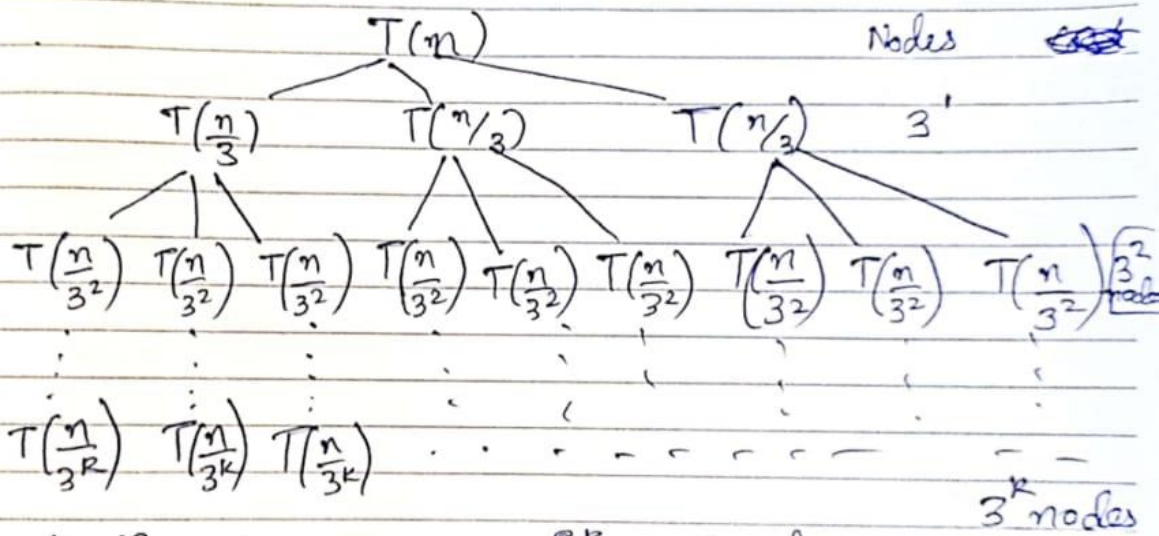 T(n) Nodes
T(n/3) T(n/3) T(n/3) 3^1
T(n/3^2) T(n/3^2) T(n/3^2) T(n/3^2) T(n/3^2) T(n/3^2) T(n/3^2) T(n/3^2) T(n/3^2) 3^2 nodes
T(n/3^k) T(n/3^k) T(n/3^k)
3^k nodes